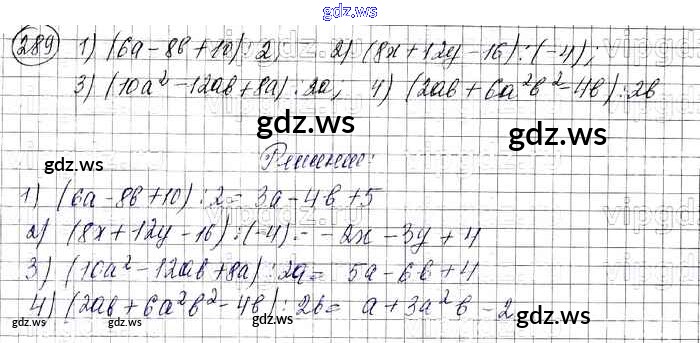 gdz.ws
289 1) (6a-8b+10):2, 2) (8x+12y-16):(-4);
3) (10a²-12ab+8a):2a, 4) (2ab+6a²b²-4b):2b
gdz.ws gdz.ws
gdz.ws Решение:
1) (6a-8b+10):2=3a-4b+5
2) (8x+12y-16):(-4)=-2x-3y+4
3) (10a²-12ab+8a):2a= 5a-6b+4
4) (2ab+6a²b²-4b):2b= a+3a²b-2
gdz.ws gdz.ws gdz.ws